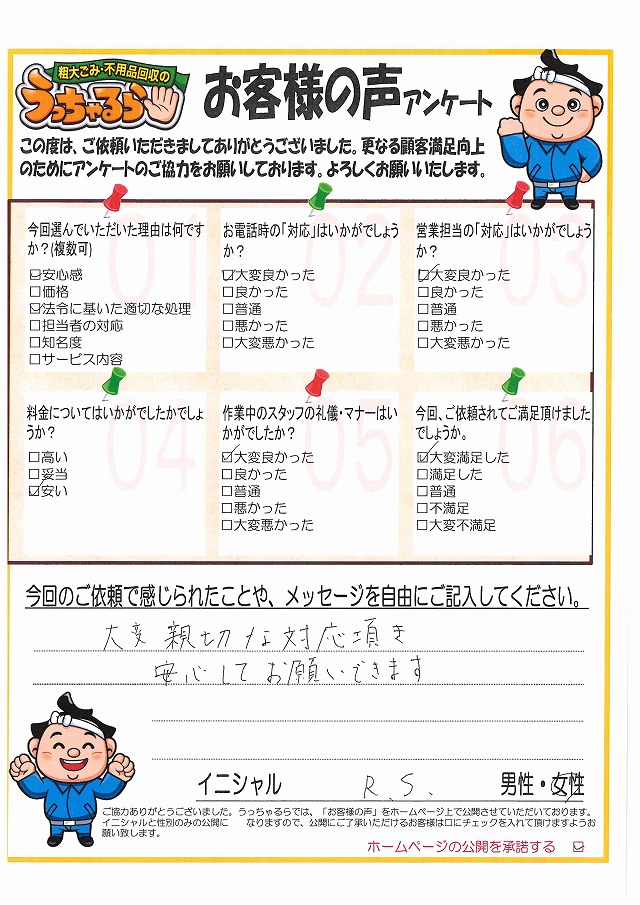 粗大ごみ・不用品回収の
うっちゃるら
お客様の声アンケート
この度は、ご依頼いただきましてありがとうございました。更なる顧客満足向上
のためにアンケートのご協力をお願いしております。よろしくお願いいたします。
01
今回選んでいただいた理由は何です
か？(複数可)
☑安心感
□価格
☑法令に基いた適切な処理
□担当者の対応
□知名度
□サービス内容
02
お電話時の「対応」はいかがでしょう
か？
☑大変良かった
□良かった
□普通
□悪かった
□大変悪かった
03
営業担当の「対応」はいかがでしょう
か？
☑大変良かった
□良かった
□普通
□悪かった
□大変悪かった
04
料金についてはいかがでしたかでしょ
うか？
□高い
□妥当
☑安い
05
作業中のスタッフの礼儀・マナーはい
かがでしたか？
☑大変良かった
□良かった
□普通
□悪かった
□大変悪かった
06
今回、ご依頼されてご満足頂けました
でしょうか。
☑大変満足した
□満足した
□普通
□不満足
□大変不満足
今回のご依頼で感じられたことや、メッセージを自由にご記入してください。
大変親切な対応頂き
安心してお願いできます
イニシャル R.S. 男性・女性
ご協力ありがとうございました。うっちゃるらでは、「お客様の声」をホームページ上で公開させていただいております。
イニシャルと性別のみの公開に なりますので、公開にご了承いただけるお客様は口にチェックを入れて頂けますようお
願い致します。
ホームページの公開を承諾する ☑